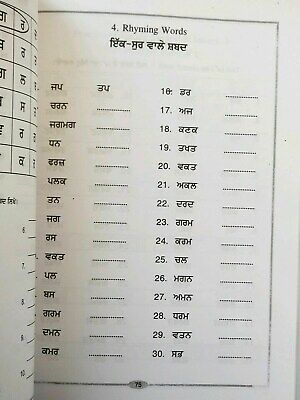 4. Rhyming Words
ਇੱਕ-ਸੁਰ ਵਾਲੇ ਸ਼ਬਦ
ਜਪ ਤਪ
ਚਰਨ ..........
ਜਗਮਗ ..........
ਧਨ ..........
ਵਰਜ਼ ..........
ਪਲਕ ..........
ਤਨ ..........
ਜਗ ..........
ਰਸ ..........
ਵਕਤ ..........
ਪਲ ..........
ਬਸ ..........
ਗਰਮ ..........
ਦਮਨ ..........
ਕਮਰ ..........
16. ਡਰ ..........
17. ਅਜ ..........
18. ਕਣਕ ..........
19. ਤਖਤ ..........
20. ਵਕਤ ..........
21. ਅਕਲ ..........
22. ਦਰਦ ..........
23. ਗਰਮ ..........
24. ਕਰਮ ..........
25. ਚਲ ..........
26. ਮਗਨ ..........
27. ਅਮਨ ..........
28. ਧਰਮ ..........
29. ਵਤਨ ..........
30. ਸਭ ..........
75